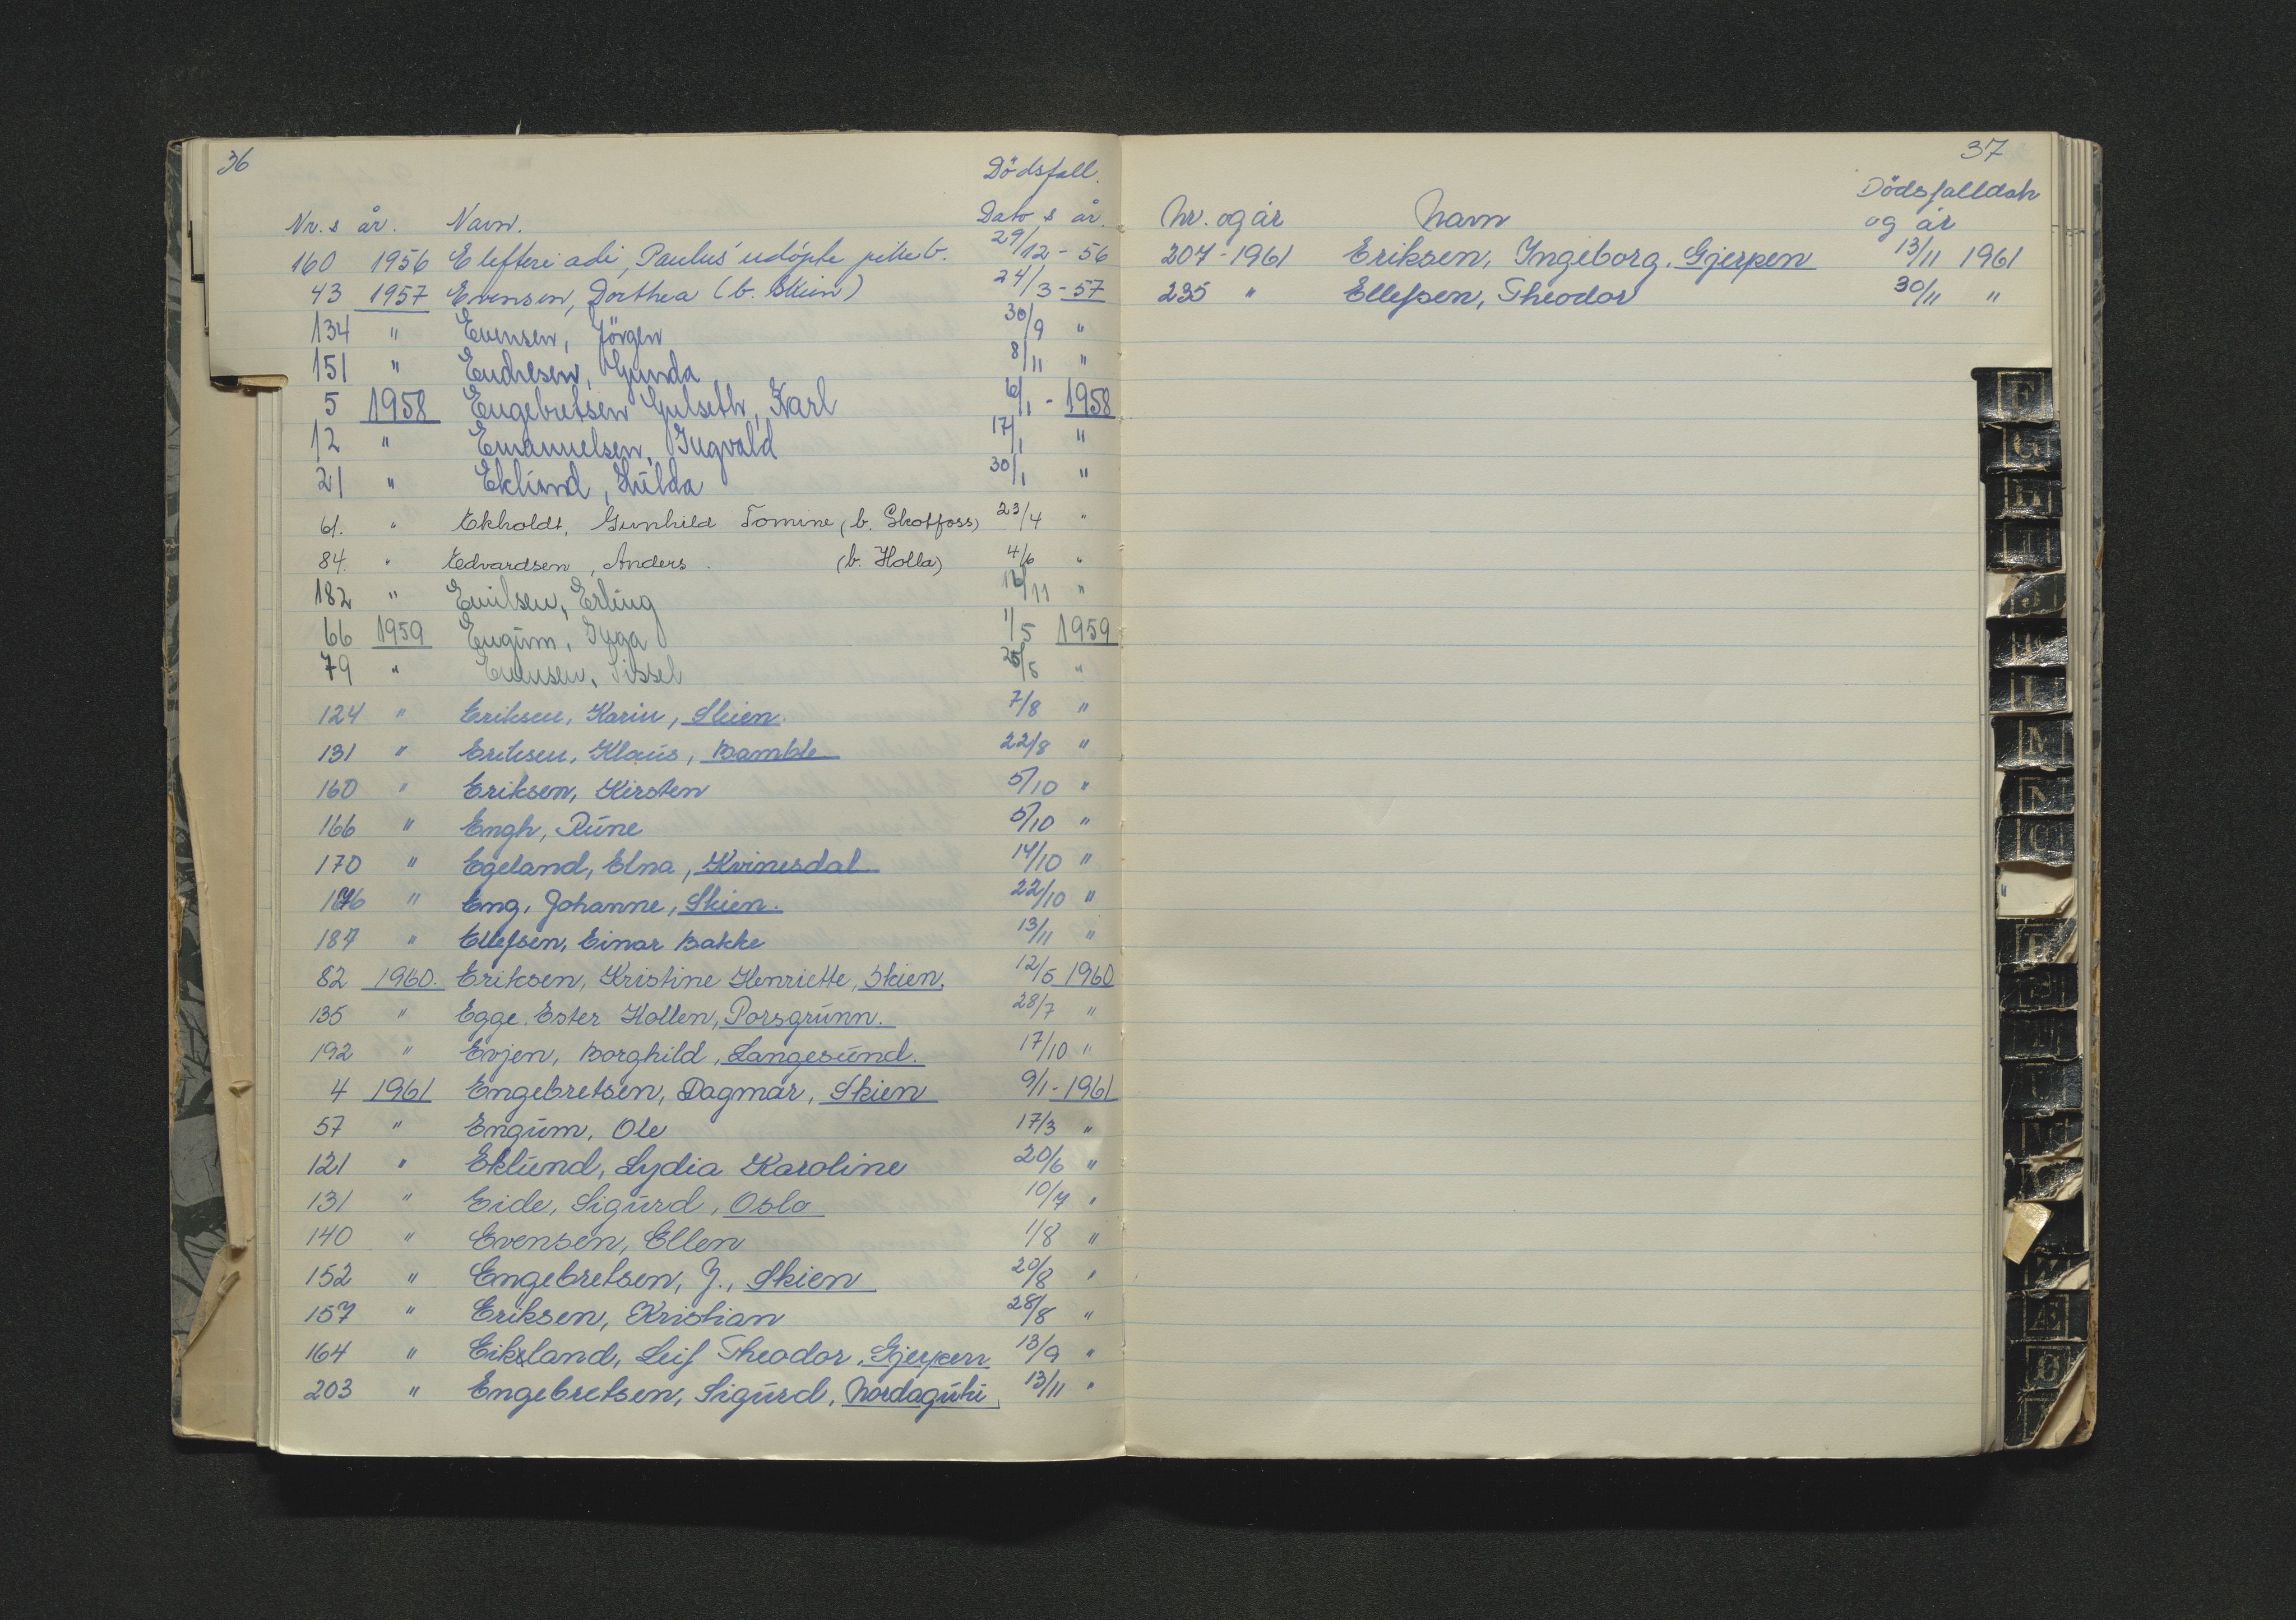 36
Dödsfall.
Nr. & år. Navn. Dato & år.
160 1956 Elefteriadi, Paulus' udöpte pikeb. 29/12 - 56
43 1957 Evensen, Dorthea (b. Skien) 24/3 - 57
134 " Evensen, Jörgen 30/9 "
151 " Endresen, Gunda 8/11 "
5 1958 Engebretsen Gulseth, Karl 6/1 - 1958
12 " Emanuelsen, Ingvald 17/1 "
21 " Eklund, Hulda 30/1 "
61. " Ekholdt, Gunhild Tomine (b. Skotfoss) 23/4 "
84. " Edvardsen, Anders. (b. Holla) 4/6 "
182 " Emilsen, Erling 12/11 "
66 1959 Engum, Inga 1/5 1959
79 " Evensen, Sissel 25/5 "
124 " Eriksen, Karin, Skien. 7/8 "
131 " Eriksen, Klaus, Bamble 22/8 "
160 " Eriksen, Kirsten 5/10 "
166 " Engh, Rune 5/10 "
170 " Egeland, Elna, Kvinesdal 14/10 "
176 " Eng, Johanne, Skien. 22/10 "
187 " Ellefsen, Einar Bakke 13/11 "
82 1960. Eriksen, Kristine Henriette, Skien. 12/5 1960
135 " Egge, Ester Hollen, Porsgrunn. 28/7 "
192 " Evjen, Borghild, Langesund. 17/10 "
4 1961 Engebretsen, Dagmar, Skien 9/1 - 1961
57 " Engum, Ole 17/3 "
121 " Eklund, Lydia Karoline 20/6 "
131 " Eide, Sigurd, Oslo 10/7 "
140 " Evensen, Ellen 1/8 "
152 " Engebretsen, J., Skien 20/8 "
157 " Eriksen, Kristian 28/8 "
164 " Eikeland, Leif Theodor, Gjerpen 13/9 "
203 " Engebretsen, Sigurd, Nordagutu 13/11 "
37
Dödsfalldato
Nr. og år Navn og år
207 - 1961 Eriksen, Ingeborg, Gjerpen 13/11 1961
235 " Ellefsen, Theodor 30/11 "
F
G
H
I
J
M
N
O
R
U
Z
Æ
Ø